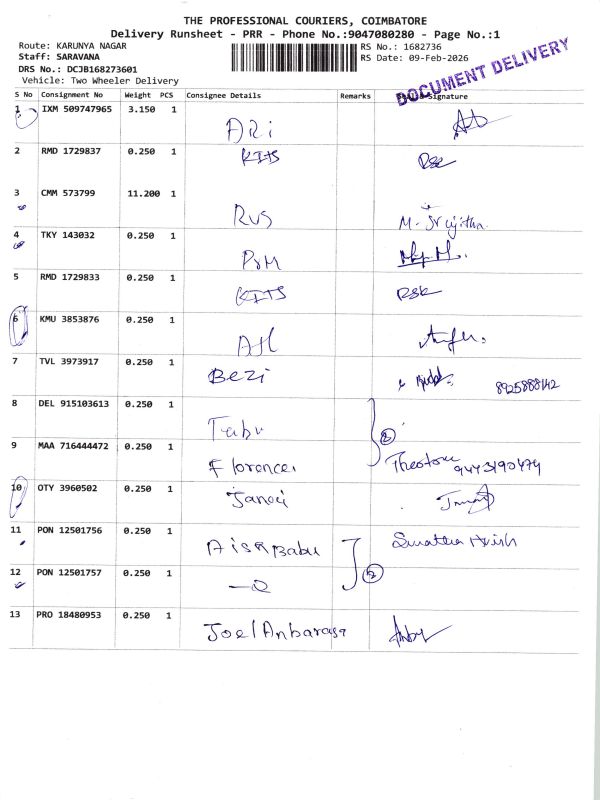 THE PROFESSIONAL COURIERS, COIMBATORE
Delivery Runsheet - PRR - Phone No.:9047080280 - Page No.:1
Route: KARUNYA NAGAR
RS No.: 1682736
Staff: SARAVANA
RS Date: 09-Feb-2026
DRS No.: DCJB168273601
Vehicle: Two Wheeler Delivery
DOCUMENT DELIVERY
S No Consignment No Weight PCS Consignee Details Remarks Signature
1 IXM 509747965 3.150 1
ARi
2 RMD 1729837 0.250 1 KITS RSK
3 CMM 573799 11.200 1
RVS M. Srijitha
4 TKY 143032 0.250 1
PSM
5 RMD 1729833 0.250 1
KITS RSK
6 KMU 3853876 0.250 1
7 TVL 3973917 0.250 1
Bezi 8925888142
8 DEL 915103613 0.250 1
Tabu 2
9 MAA 716444472 0.250 1
Florence Theotore 9443190474
10 OTY 3960502 0.250 1
11 PON 12501756 0.250 1
Aisababu
12 PON 12501757 0.250 1 2
13 PRO 18480953 0.250 1
Joel Anbarasa